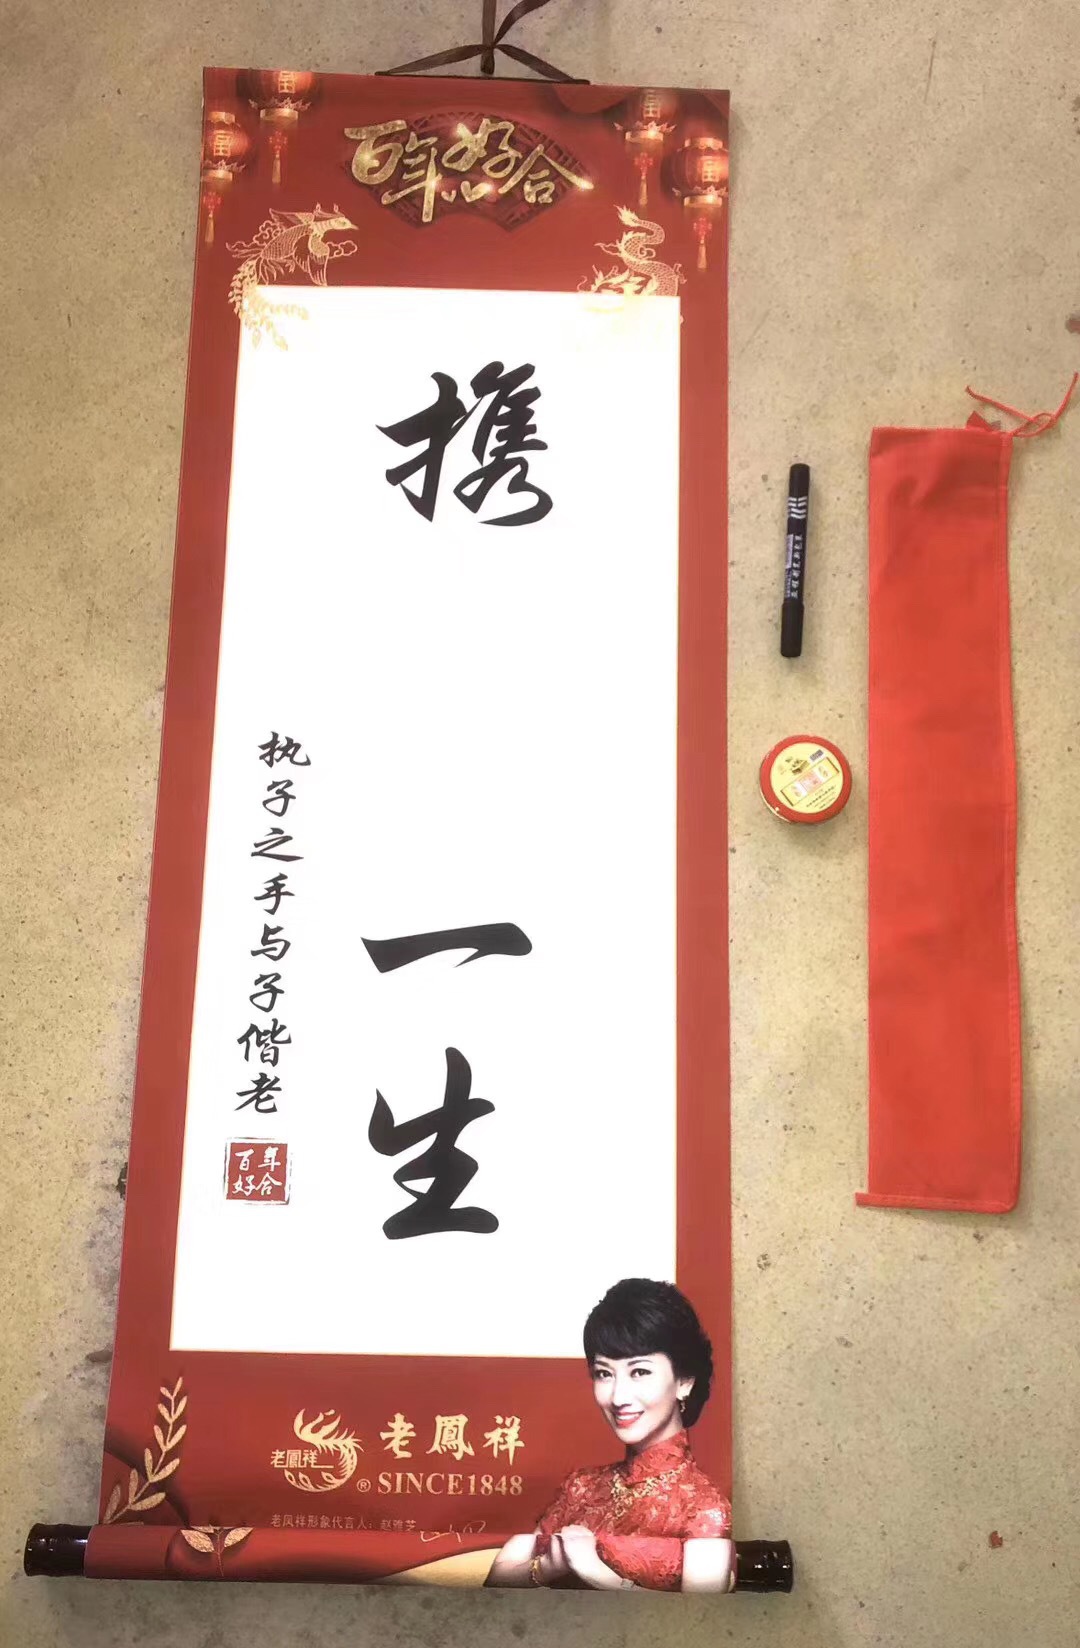 百年好合
携
一
生
执子之手与子偕老
百年
好合
老鳳祥
老鳳祥
® SINCE1848
老凤祥形象代言人：赵雅芝